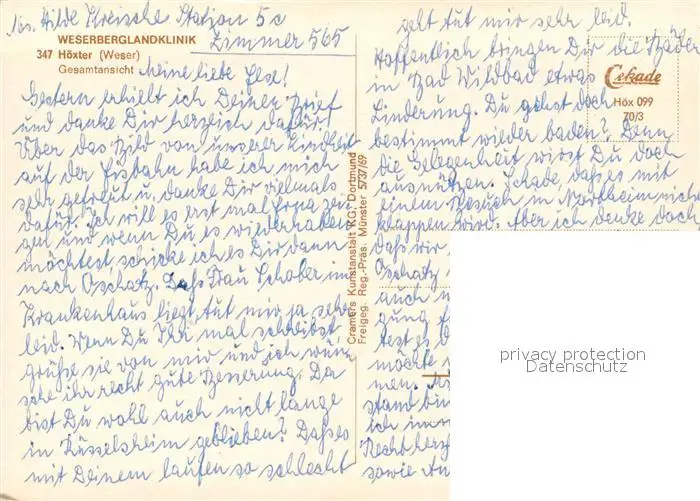 Abs. Hilde Kreische Station 5c
Zimmer 565
WESERBERGLANDKLINIK
347 Höxter (Weser)
Gesamtansicht
Meine liebe Else!
Gestern erhielt ich Deinen Brief
und danke Dir herzlich dafür.
Über das Bild von unserer Kindheit
auf der Eisbahn habe ich mich
sehr gefreut u. danke Dir vielmals
dafür. Ich will es erst mal Erna zei-
gen und wenn Du es wiederhaben
möchtest, schicke ich es Dir dann
nach Oschatz. Daß Frau Schober im
Krankenhaus liegt, tut mir ja sehr
leid. Wenn Du Ihr mal schreibst
grüße sie von mir und ich wün-
sche ihr recht gute Besserung. Da
bist Du wohl auch nicht lange
in Rüsselsheim geblieben? Daß es
mit Deinem laufen so schlecht
Cramers Kunstanstalt KG. Dortmund
Freigeg. Reg.-Präs. Münster 5737/69
geht tut mir sehr leid.
Hoffentlich bringen Dir die Bäder
in Bad Wildbad etwas
Linderung. Du gehst doch
bestimmt wieder baden? Denn
die Gelegenheit wirst Du doch
ausnützen. Schade, daß es mit
einem Besuch in Northeim nicht
klappen wird. Aber ich denke doch
daß wir
Oschatz
auch
gung
test es
möchte
men.
stand bin
ich im
Recht herz
sowie
Cekade
Höx 099
70/3
privacy protection
Datenschutz